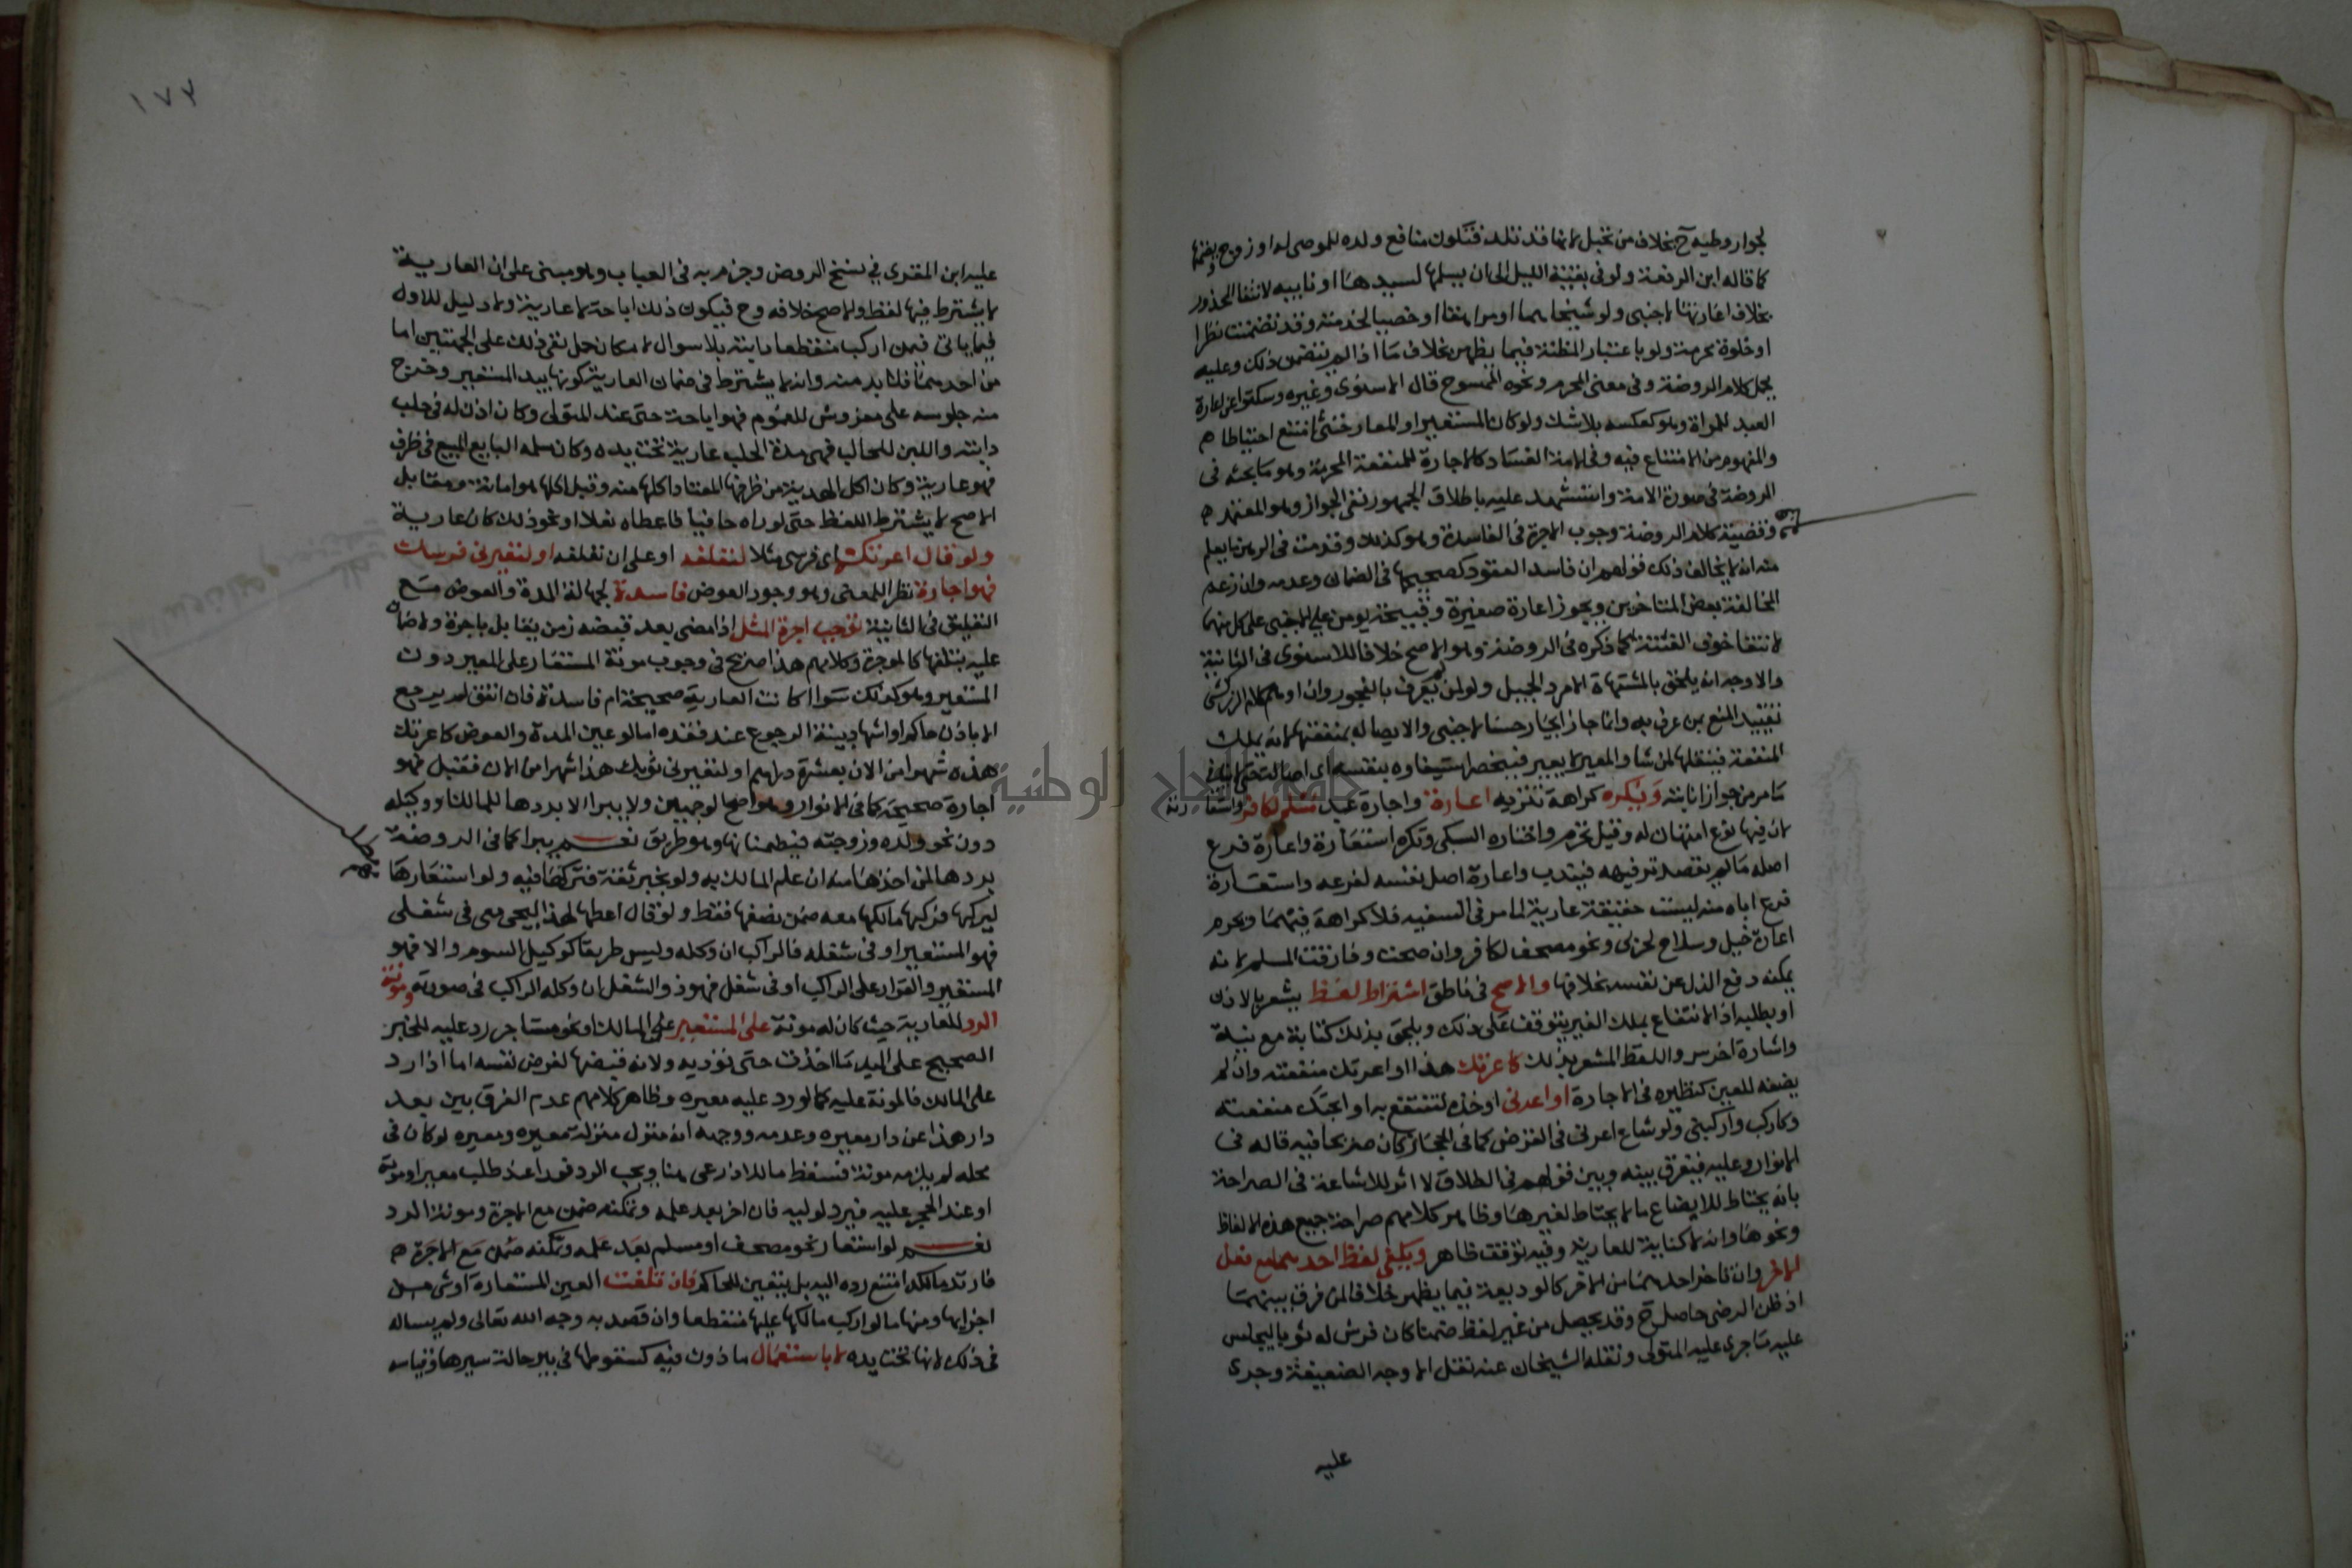 لجواز وطيه ح بخلاف من تحبل لانها قد تلد فتكون منافع ولده للموصى له او زوج بضمها
كما قاله ابن الرفعة ولو في بقية الليل الى ان يسلمها لسيدها او نايبه لانتفا المحذور
بخلاف اعارتها لاجنبي ولو شيخا هما او مراهقا او خصيا لخدمته وقد تضمنت نظرا
او خلوة محرمة ولو باعتبار المظنة فيما يظهر بخلاف ما اذا لم تتضمن ذلك وعليه
يحمل كلام الروضة وفي معنى المحرم ونحوه الممسوح قال الاسنوي وغيره وسكتوا عن اعارة
العبد للمراة وهو كعكسه بلا شك ولو كان المستعير او المعار خنثى امتنع احتياطا ه
والمفهوم من الامتناع فيه وفي الامة الفساد كالاجارة للمنفعة المحرمة وهو ما بحثه في
الروضة في صورة الامة واستشهد عليه باطلاق الجمهور نفي الجواز وهو المعتمد ه
وقضية كلام الروضة وجوب الاجرة في الفاسدة وهو كذلك وقدمت في الرهن ما يعلم
منه انه لا يخالف ذلك قولهم ان فاسد العقود كصحيحها في الضمان وعدمه وان زعم
المخالفة بعض المتاخرين ويجوز اعارة صغيرة وقبيحة يومن علي الاجنبي على كل منهما
لانتفا خوف الفتنة كما ذكره في الروضة وهو الاصح خلافا للاسنوي في الثانية
والاوجه انه يلحق بالمشتهاة الامرد الجميل ولو لمن لم يعرف بالفجور وان اوهم كلام الزركشي
تقييد المنع بمن عرف به وانما جاز ايجار حسنا لاجنبي والايصا له بمنفعتها لانه يملك
المنفعة فينقلها لمن شا والمعير لا يعير فينحصر استيفاوه بنفسه اي اصالة
ما مر من جواز انابته ويكره كراهة تنزيه اعارة واجارة عبد مسلم لكافر واستعارته
لان فيها نوع امتهان له وقيل تحرم واختاره السبكي وتكره استعارة واعارة فرع
اصله ما لم يقصد ترفيهه فيندب واعارة اصل نفسه لفرعه واستعارة
فرع اباه منه ليست حقيقة عارية لما مر في السفيه فلا كراهة فيهما ويحرم
اعارة خيل وسلاح لحربي ونحو مصحف لكافر وان صحت وفارقت المسلم لانه
يمكنه دفع الذل عن نفسه بخلافها والاصح في ناطق اشتراط لفظ يشعر بالاذن
او بطلبه اذ الانتفاع بملك الغير يتوقف على ذلك ويلحق بذلك كتابة مع نية
واشارة اخرس واللفظ المشعر بذلك كاعرتك هذا او اعرتك منفعته وان لم
يضفه للعين كنظيره في الاجارة او اعرني او خذه لتنتفع به او ابحتك منفعته
وكاركب واركبني ولو شاع اعرني في القرض كما في الحجاز كان صريحا فيه قاله في
الانوار وعليه فيفرق بينه وبين قولهم في الطلاق لا اثر للاشاعة في الصراحة
بانه يحتاط للابضاع ما لا يحتاط لغيرها وظاهر كلامهم صراحة جميع هذه الالفاظ
ونحوها وانه لا كناية للعارية وفيه توقف ظاهر ويكفي لفظ احدهما مع فعل
الاخر وان تاخر احدهما من الاخر كالوديعة فيما يظهر خلافا لمن فرق بينهما
اذ ظن الرضى حاصل ح وقد يحصل من غير لفظ ضمنا كان فرش له ثوبا ليجلس
عليه ما جرى عليه المتولي ونقله الشيخان عنه نقل الاوجه الضعيفة وجرى
عليه
١٧٣
عليه ابن المقري في نسخ الروض وجزم به في العباب وهو مبني على ان العارية
لا يشترط فيها لفظ والاصح خلافه وح فيكون ذلك اباحة لا عارية ولا دليل للاول
فيما ياتي فيمن اركب منقطعا دابته بلا سوال لامكان حمل نفي ذلك على الجهتين اما
من احدهما فلا بد منه وانه لا يشترط في ضمان العارية كونها بيد المستعير وخرج
منه جلوسه على مفروش للعموم فهو اباحة حتى عند المتولي وكان اذن له في حلب
دابته واللبن للحالب فهي مدة الحلب عارية تحت يده وكان سلمه البايع المبيع في ظرف
فهو عارية وكان اكل الهدية من ظرفها المعتاد اكلها منه وقبل اكلها هو امانة ومقابل
الاصح لا يشترط اللفظ حتى لو راه حافيا فاعطاه نعلا او نحو ذلك كان عارية
ولو قال اعرتكها اي فرسي مثلا لتعلفه او على ان تعلفه او لتعيرني فرسك
فهو اجارة نظرا للمعنى وهو وجود العوض فاسدة لجهالة المدة والعوض مع
التعليق في الثانية توجب اجرة المثل اذا مضى بعد قبضه زمن يقابل باجرة ولا ضمان
عليه بتلفها كالموجرة وكلامهم هذا صريح في وجوب مونة المستعار على المعير دون
المستعير وهو كذلك سوا اكانت العارية صحيحة ام فاسدة فان انفق لم يرجع
الا باذن حاكم او اشهاد بينة الرجوع عند فقده اما لو عين المدة والعوض كاعرتك
هذه شهرا من الان بعشرة دراهم او لتعيرني ثوبك هذا شهرا من الان فقبل فهو
اجارة صحيحة كما في الانوار وهو اصح الوجهين ولا يبرا الا بردها للمالك او وكيله
دون نحو ولده وزوجته فيطمنانها وهو طريق نعم يبرا كما في الروضة
بردها لمن اخذها منه ان علم المالك به ولو بخبر ثقة فتركها فيه ولو استعارها
ليركبها فركبها مالكها معه ضمن نصفها فقط ولو قال اعطها لهذا ليجي معي في شغلي
فهو المستعير او في شغله فالراكب ان وكله وليس طريقا كوكيل السوم والا فهو
المستعير والقرار على الراكب او في شغل فهو ذو الشغل ان وكله الراكب في صورته ومونة
الرد للعارية حيث كان له مونة على المستعير على المالك او نحو مستاجر رد عليه للخبر
الصحيح على اليد ما اخذت حتى توديه ولانه قبضها لغرض نفسه اما اذا رد
على المالك فالمونة عليه كما لو رد عليه معيره وظاهر كلامهم عدم الفرق بين بعد
دار هذا عن دار معيره وعدمه ووجهه انه منزل منزلة معيره ومعيره لو كان في
محله لم يلزمه مونة فسقط ما للاذرعي هنا ويجب الرد فورا عند طلب معير او موته
او عند الحجر عليه فيرد لوليه فان اخر بعد علمه وتمكنه ضمن مع الاجرة ومونة الرد
نعم لو استعار نحو مصحف او مسلم بعد علمه وتمكنه ضمن مع الاجرة ه
فارتد مالكه امتنع رده اليه بل يتعين للحاكم فان تلفت العين المستعارة او شي من
اجزايها ومنها ما لو اركب مالكها عليها منقطعا وان قصد به وجه الله تعالى ولم يساله
في ذلك لانها تحت يده لا باستعمال ماذون فيه كسقوطها في بير حالة سيرها وقياسه